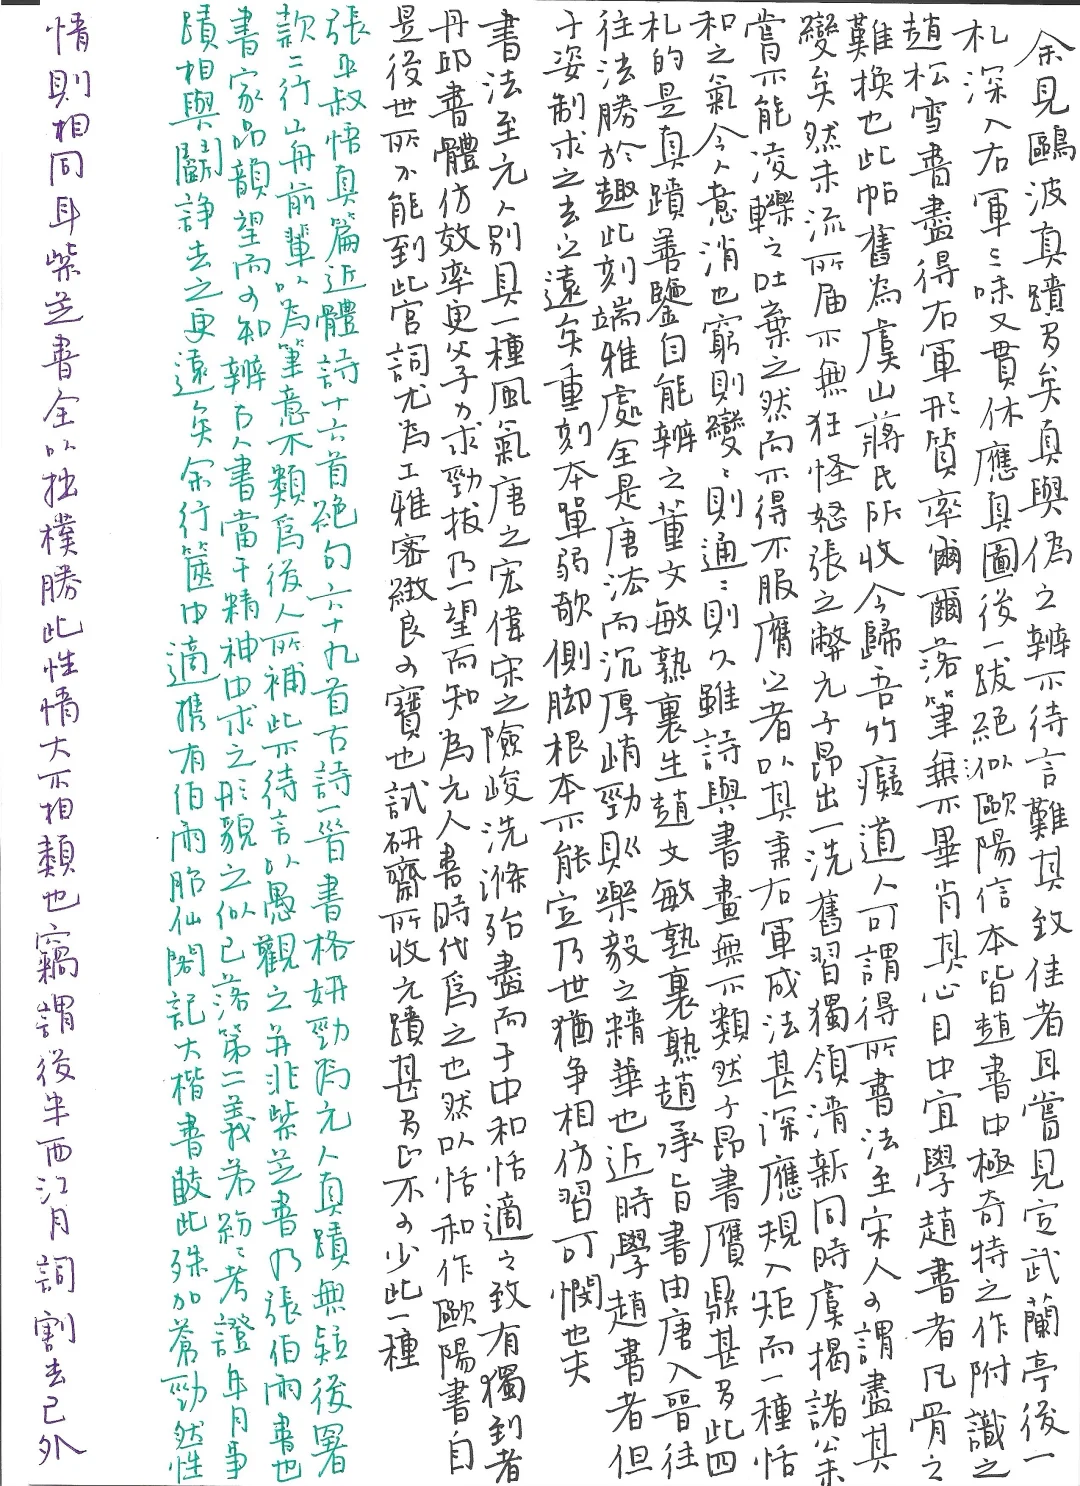 余見鷗波真蹟多矣真與偽之辨不待言難其致佳者耳嘗見定武蘭亭後一
札深入右軍三昧又貫休應真圖後一跋絕似歐陽信本皆趙書中極奇特之作附識之
趙松雪書盡得右軍形質率爾爾落筆無不畢肖其心目中宜學趙書者凡骨之
難換也此帖舊為虞山蔣氏所收今歸吾竹癡道人可謂得所書法至宋人可謂盡其
變矣然末流所届不無狂怪怒張之弊元子昂出一洗舊習獨領清新同時虞揭諸公未
嘗不能凌轢之吐棄之然而不得不服膺之者以其秉右軍成法甚深應規入矩而一種恬
和之氣令人意消也窮則變變則通通則久雖詩與書畫無不類然子昂書贋鼎甚多此四
札的是真蹟善鑒自能辨之董文敏熟裏生趙文敏熟裏熟趙承旨書由唐入晉往
往法勝於趣此刻端雅處全是唐法而沉厚峭勁則樂毅之精華也近時學趙書者但
于姿制求之去之遠矣重刻本單弱欹側脚根本不能定乃世猶爭相仿習可憫也夫
書法至元人別具一種風氣唐之宏偉宋之險峻洗滌殆盡而于中和恬適之致有獨到者
丹邱書體仿效率更父子力求勁拔乃一望而知為元人書時代為之也然以恬和作歐陽書自
是後世所不能到此宮詞尤為工雅審緻良可寶也試研齋所收元蹟甚多正不可少此一種
張平叔悟真篇近體詩十六首絕句六十九首古詩一首書格妍勁為元人真蹟無疑後署
款二行山舟前輩以為筆意不類為後人所補此不待言以愚觀之并非紫芝書乃張伯雨書也
書家品韻望而可知辨古人書當于精神中求之形貌之似已落第二義若紛紛考證年月事
蹟相與鬬諍去之更遠矣余行篋中適攜有伯雨貽仙閣記大楷書較此殊加蒼勁然性
情則相同耳紫芝書全以拙樸勝此性情大不相類也竊謂後半西江月詞割去已外